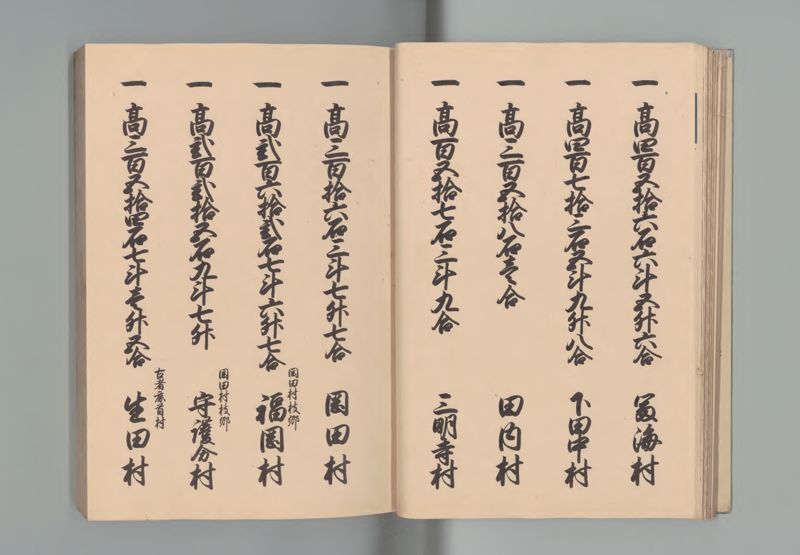 一 高四百五拾六石六斗五升六合 富海村
一 高四百七拾三石五斗九升八合 下田中村
一 高三百五拾八石壱合 田内村
一 高百五拾七石三斗九合 三明寺村
一 高三百拾六石三斗七升七合 岡田村
岡田村枝郷
一 高弐百六拾弐石七斗六升七合 福岡村
岡田村枝郷
一 高弐百弐拾五石九斗七升 守護分村
古者
一 高三百五拾四石七斗壱升五合 生田村